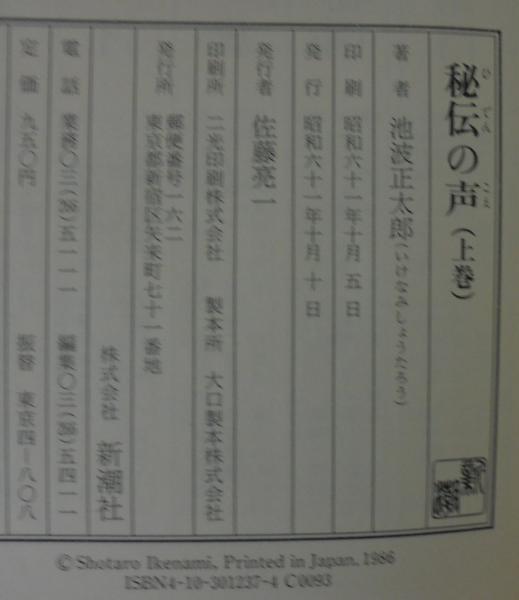 秘伝の声(上巻)
ひでんこえ
著者 池波正太郎(いけなみしょうたろう)
印刷 昭和六十一年十月五日
発行 昭和六十一年十月十日
発行者 佐藤亮一
印刷所 二光印刷株式会社 製本所 大口製本株式会社
発行所 郵便番号一六二
東京都新宿区矢来町七十一番地
株式会社 新潮社
電話 業務〇三(266)五一一一 編集〇三(266)五四一一
定価 九五〇円 振替 東京四―八〇八
© Shotaro Ikenami, Printed in Japan. 1986
ISBN4-10-301237-4 C0093